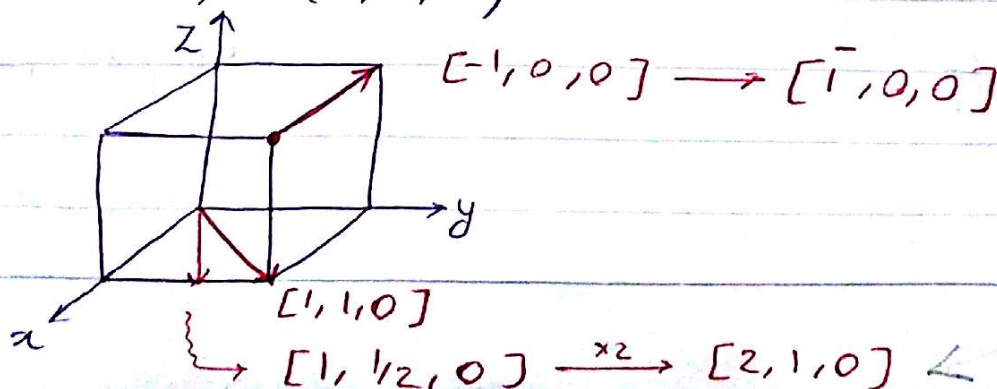 z
[-1, 0, 0] → [1̄, 0, 0]
y
[1, 1, 0]
x
[1, 1/2, 0] ×2→ [2, 1, 0]